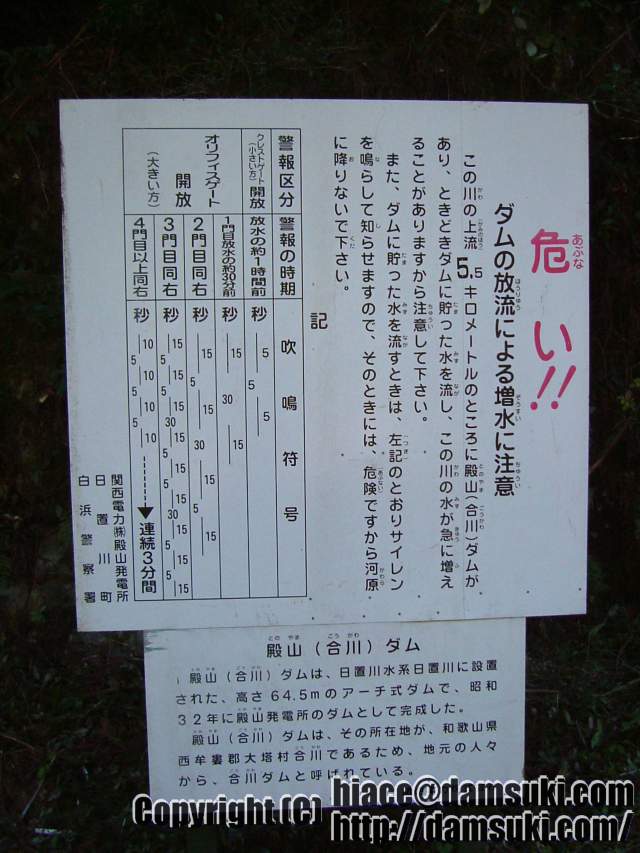 危い!!
あぶな
ダムの放流による増水に注意
ほうりゅう
ぞうすい
ちゅうい
この川の上流5.5キロメートルのところに殿山(合川)ダムが
あり、ときどきダムに貯った水を流し、この川の水が急に増え
ることがありますから注意して下さい。
また、ダムに貯った水を流すときは、左記のとおりサイレン
を鳴らして知らせますので、そのときには、危険ですから河原
に降りないで下さい。
記
警報区分
警報の時期
吹鳴符号
クレストゲート(小さい方)開放
放水の約1時間前
秒 5 5 5
オリフィスゲート(大きい方)開放
1門目放水の約30分前
秒 15 30 15
2門目同右
秒 15 5 15 30 15 5 15
3門目同右
秒 15 5 15 5 15 30 15 5 15 5 15
4門目以上同右
秒 10 5 10 5 10 5 10 連続3分間
関西電力㈱殿山発電所
日置川町
白浜警察署
殿山(合川)ダム
とのやま ごうかわ
殿山(合川)ダムは、日置川水系日置川に設置
された、高さ64.5mのアーチ式ダムで、昭和
32年に殿山発電所のダムとして完成した。
殿山(合川)ダムは、その所在地が、和歌山県
西牟婁郡大塔村合川であるため、地元の人々
から、合川ダムと呼ばれている。
Copyright (C) hiace@damsuki.com
http://damsuki.com/